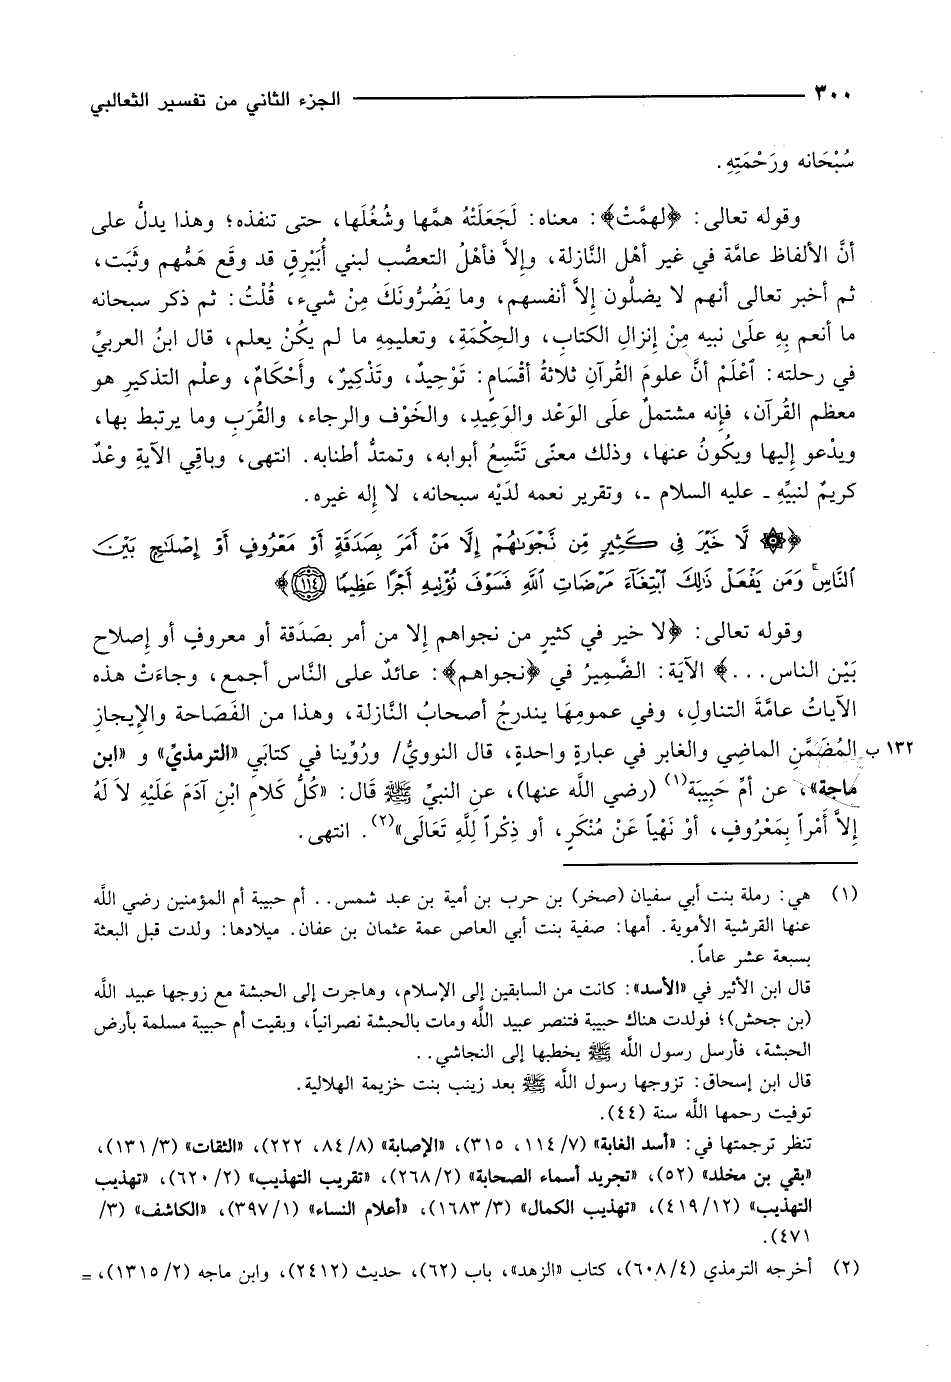 ٣٠٠ الجزء الثاني من تفسير الثعالبي
سُبْحَانه ورَحْمَتِهِ.
وقوله تعالى: ﴿لهمَّتْ﴾: معناه: لَجَعَلَتْهُ همَّها وشُغُلَها، حتى تنفذه؛ وهذا يدلُّ على
أنَّ الألفاظ عامَّة في غير أهْل النَّازلة، وإلاَّ فأهْلُ التعصُّب لبني أُبَيْرِقٍ قد وقَع هَمُّهم وثَبَت،
ثم أخبر تعالى أنهم لا يضلُّون إلاَّ أنفسهم، وما يَضُرُّونَكَ مِنْ شيء، قُلْتُ: ثم ذكر سبحانه
ما أنعم بِهِ علَىٰ نبيه مِنْ إنزالِ الكتابِ، والحِكْمَةِ، وتعليمِهِ ما لم يكُنْ يعلم، قال ابنُ العربيِّ
في رحلته: ٱعْلَمْ أنَّ علومَ القُرآنِ ثلاثةُ أقْسَامٍ: تَوْحِيدٌ، وتَذْكِيرٌ، وأَحْكَامٌ، وعلْم التذكيرِ هو
معظم القُرآن، فإنه مشتملٌ علَى الوَعْد والوَعِيدِ، والخَوْف والرجاء، والقُرَبِ وما يرتبط بها،
ويدْعو إليها ويكُونُ عنها، وذلك معنًى تَتَّسِعُ أبوابه، وتمتدُّ أطنابه. انتهى، وباقِي الآيةِ وعْدٌ
كريمٌ لنبيِّهِ - عليه السلام -، وتقرير نعمه لدَيْه سبحانه، لا إله غيره.
﴿۞ لَّا خَيْرَ فِى كَثِيرٍ مِّن نَّجْوَىٰهُمْ إِلَّا مَنْ أَمَرَ بِصَدَقَةٍ أَوْ مَعْرُوفٍ أَوْ إِصْلَٰحٍ بَيْنَ
النَّاسِ ۚ وَمَن يَفْعَلْ ذَٰلِكَ ٱبْتِغَآءَ مَرْضَاتِ ٱللَّهِ فَسَوْفَ نُؤْتِيهِ أَجْرًا عَظِيمًا ١١٤﴾
وقوله تعالى: ﴿لا خير في كثيرٍ من نجواهم إلا من أمر بصَدَقة أو معروفٍ أو إصلاح
بَيْن الناس...﴾ الآيَة: الضَّميرُ في ﴿نجواهم﴾: عائدٌ على النَّاس أجمع، وجاءَتْ هذه
الآياتُ عامَّةَ التناولِ، وفي عمومِهَا يندرجُ أصحابُ النَّازلة، وهذا من الفَصَاحة والإيجازِ
١٣٢ ب المُضَمَّنِ الماضِي والغابر في عبارةٍ واحدةٍ، قال النوويُّ/ ورُوِّينا في كتابَيِ «الترمذيِّ» و «ابن
ماجة»، عن أمِّ حَبِيبَة(١) (رضي الله عنها)، عنِ النبيِّ ﷺ قال: «كُلُّ كَلامِ ابْنِ آدَمَ عَلَيْهِ لاَ لَهُ
إلاَّ أَمْراً بِمَعْرُوفٍ، أوْ نَهْياً عَنْ مُنْكَرٍ، أو ذِكْراً لِلَّهِ تَعَالَى»(٢). انتهى.
(١) هي: رملة بنت أبي سفيان (صخر) بن حرب بن أمية بن عبد شمس.. أم حبيبة أم المؤمنين رضي الله
عنها القرشية الأموية. أمها: صفية بنت أبي العاص عمة عثمان بن عفان. ميلادها: ولدت قبل البعثة
بسبعة عشر عاماً.
قال ابن الأثير في «الأسد»: كانت من السابقين إلى الإسلام، وهاجرت إلى الحبشة مع زوجها عبيد الله
(بن جحش)؛ فولدت هناك حبيبة فتنصر عبيد الله ومات بالحبشة نصرانياً، وبقيت أم حبيبة مسلمة بأرض
الحبشة، فأرسل رسول الله ﷺ يخطبها إلى النجاشي..
قال ابن إسحاق: تزوجها رسول الله ﷺ بعد زينب بنت خزيمة الهلالية.
توفيت رحمها الله سنة (٤٤).
تنظر ترجمتها في: «أسد الغابة» (٧/ ١١٤، ٣١٥)، «الإصابة» (٨/ ٨٤، ٢٢٢)، «الثقات» (٣/ ١٣١)،
«بقي بن مخلد» (٥٢)، «تجريد أسماء الصحابة» (٢/ ٢٦٨)، «تقريب التهذيب» (٢/ ٦٢٠)، «تهذيب
التهذيب» (١٢/ ٤١٩)، «تهذيب الكمال» (٣/ ١٦٨٣)، «أعلام النساء» (١/ ٣٩٧)، «الكاشف» (٣/
٤٧١).
(٢) أخرجه الترمذي (٤/ ٦٠٨)، كتاب «الزهد»، باب (٦٢)، حديث (٢٤١٢)، وابن ماجه (٢/ ١٣١٥)، =